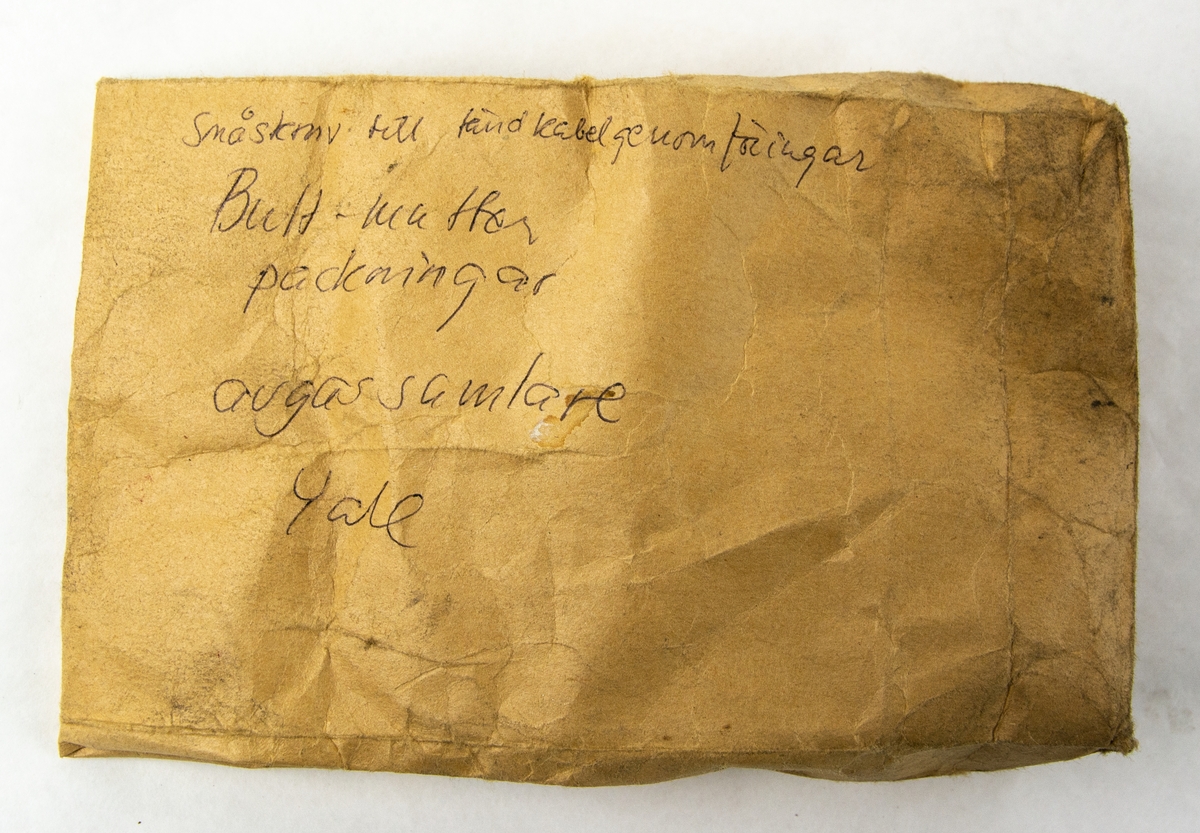 Småskruv till tändkabelgenomföringar
Bult-muttrar
packningar
avgassamlare
Yale